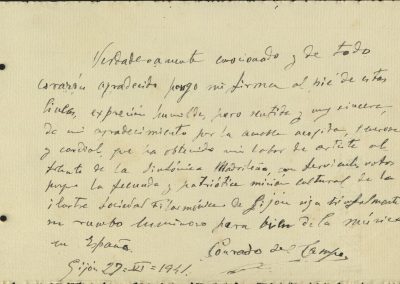 Verdaderamente emocionado y de todo
corazón agradecido pongo mi firma al pie de estas
lineas, expresión humilde, pero sentida y muy sincera,
de mi agradecimiento por la amable acogida, generosa
y cordial, que ha obtenido mi labor de artista al
frente de la Sinfónica Madrileña, con fervientes votos
porque la fecunda y patriótica misión cultural de la
ilustre Sociedad Filarmónica de Gijón siga triunfalmente
su rumbo luminoso para bien de la música
en España
Conrado del Campo
Gijón 27-VI-1941.